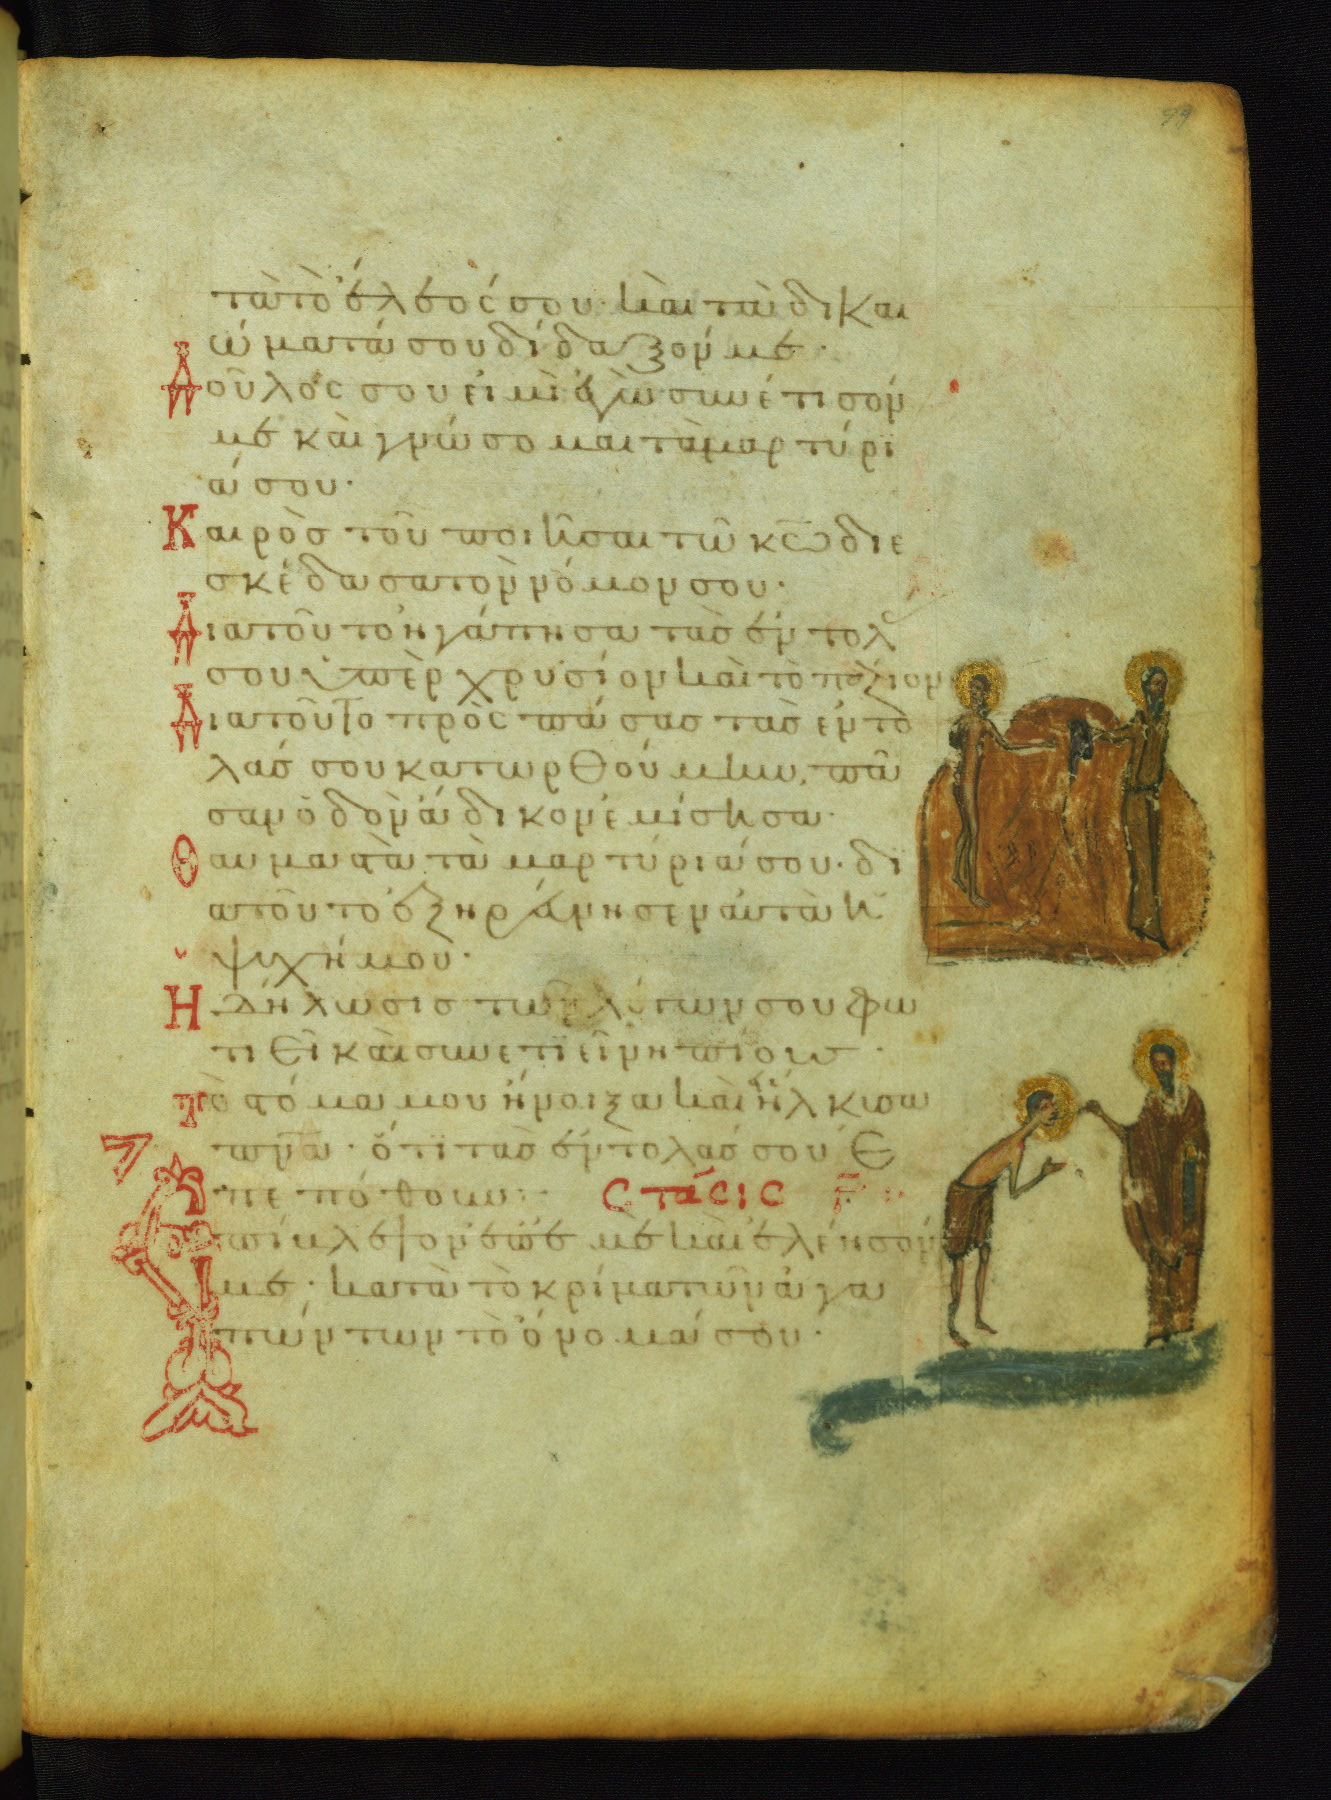 99
τὰ τὸ ἔλεός σου· καὶ τὰ δικαι
ώματά σου δίδαξόν με·
Δοῦλός σου εἰμὶ ἐγὼ συνέτισόν
με καὶ γνώσομαι τὰ μαρτύρι
ά σου·
Καιρὸς τοῦ ποιῆσαι τῶ κω διε
σκέδασαν τὸν νόμον σου·
Διατοῦτο ἠγάπησα τὰς ἐντολ
σου ὑπὲρ χρυσίον καὶ τοπάζιον
Διατοῦτο πρὸς πάσας τὰς ἐντο
λάς σου κατωρθούμην, πᾶ
σαν ὁδὸν ἄδικον ἐμίσησα·
Θαυμαστὰ τὰ μαρτύριά σου· δι
ατοῦτο ἐξηράυνησεν ἀυτὰ ἡ
ψυχή μου·
Ἡ δήλωσις τῶν λόγων σου φω
τιεῖ καὶ συνετιεῖ νηπίους·
Τὸ στόμα μου ἤνοιξα καὶ εἵλκυσα
πνα· ὅτι τὰς ἐντολάς σου ἐ
πεπόθουν·
Στάσις Γ
Ἐπίβλεψον ἐπ' ἐμὲ καὶ ἐλέησόν
με· κατὰ τὸ κρίμα τῶν ἀγα
πώντων τὸ ὄνομά σου·